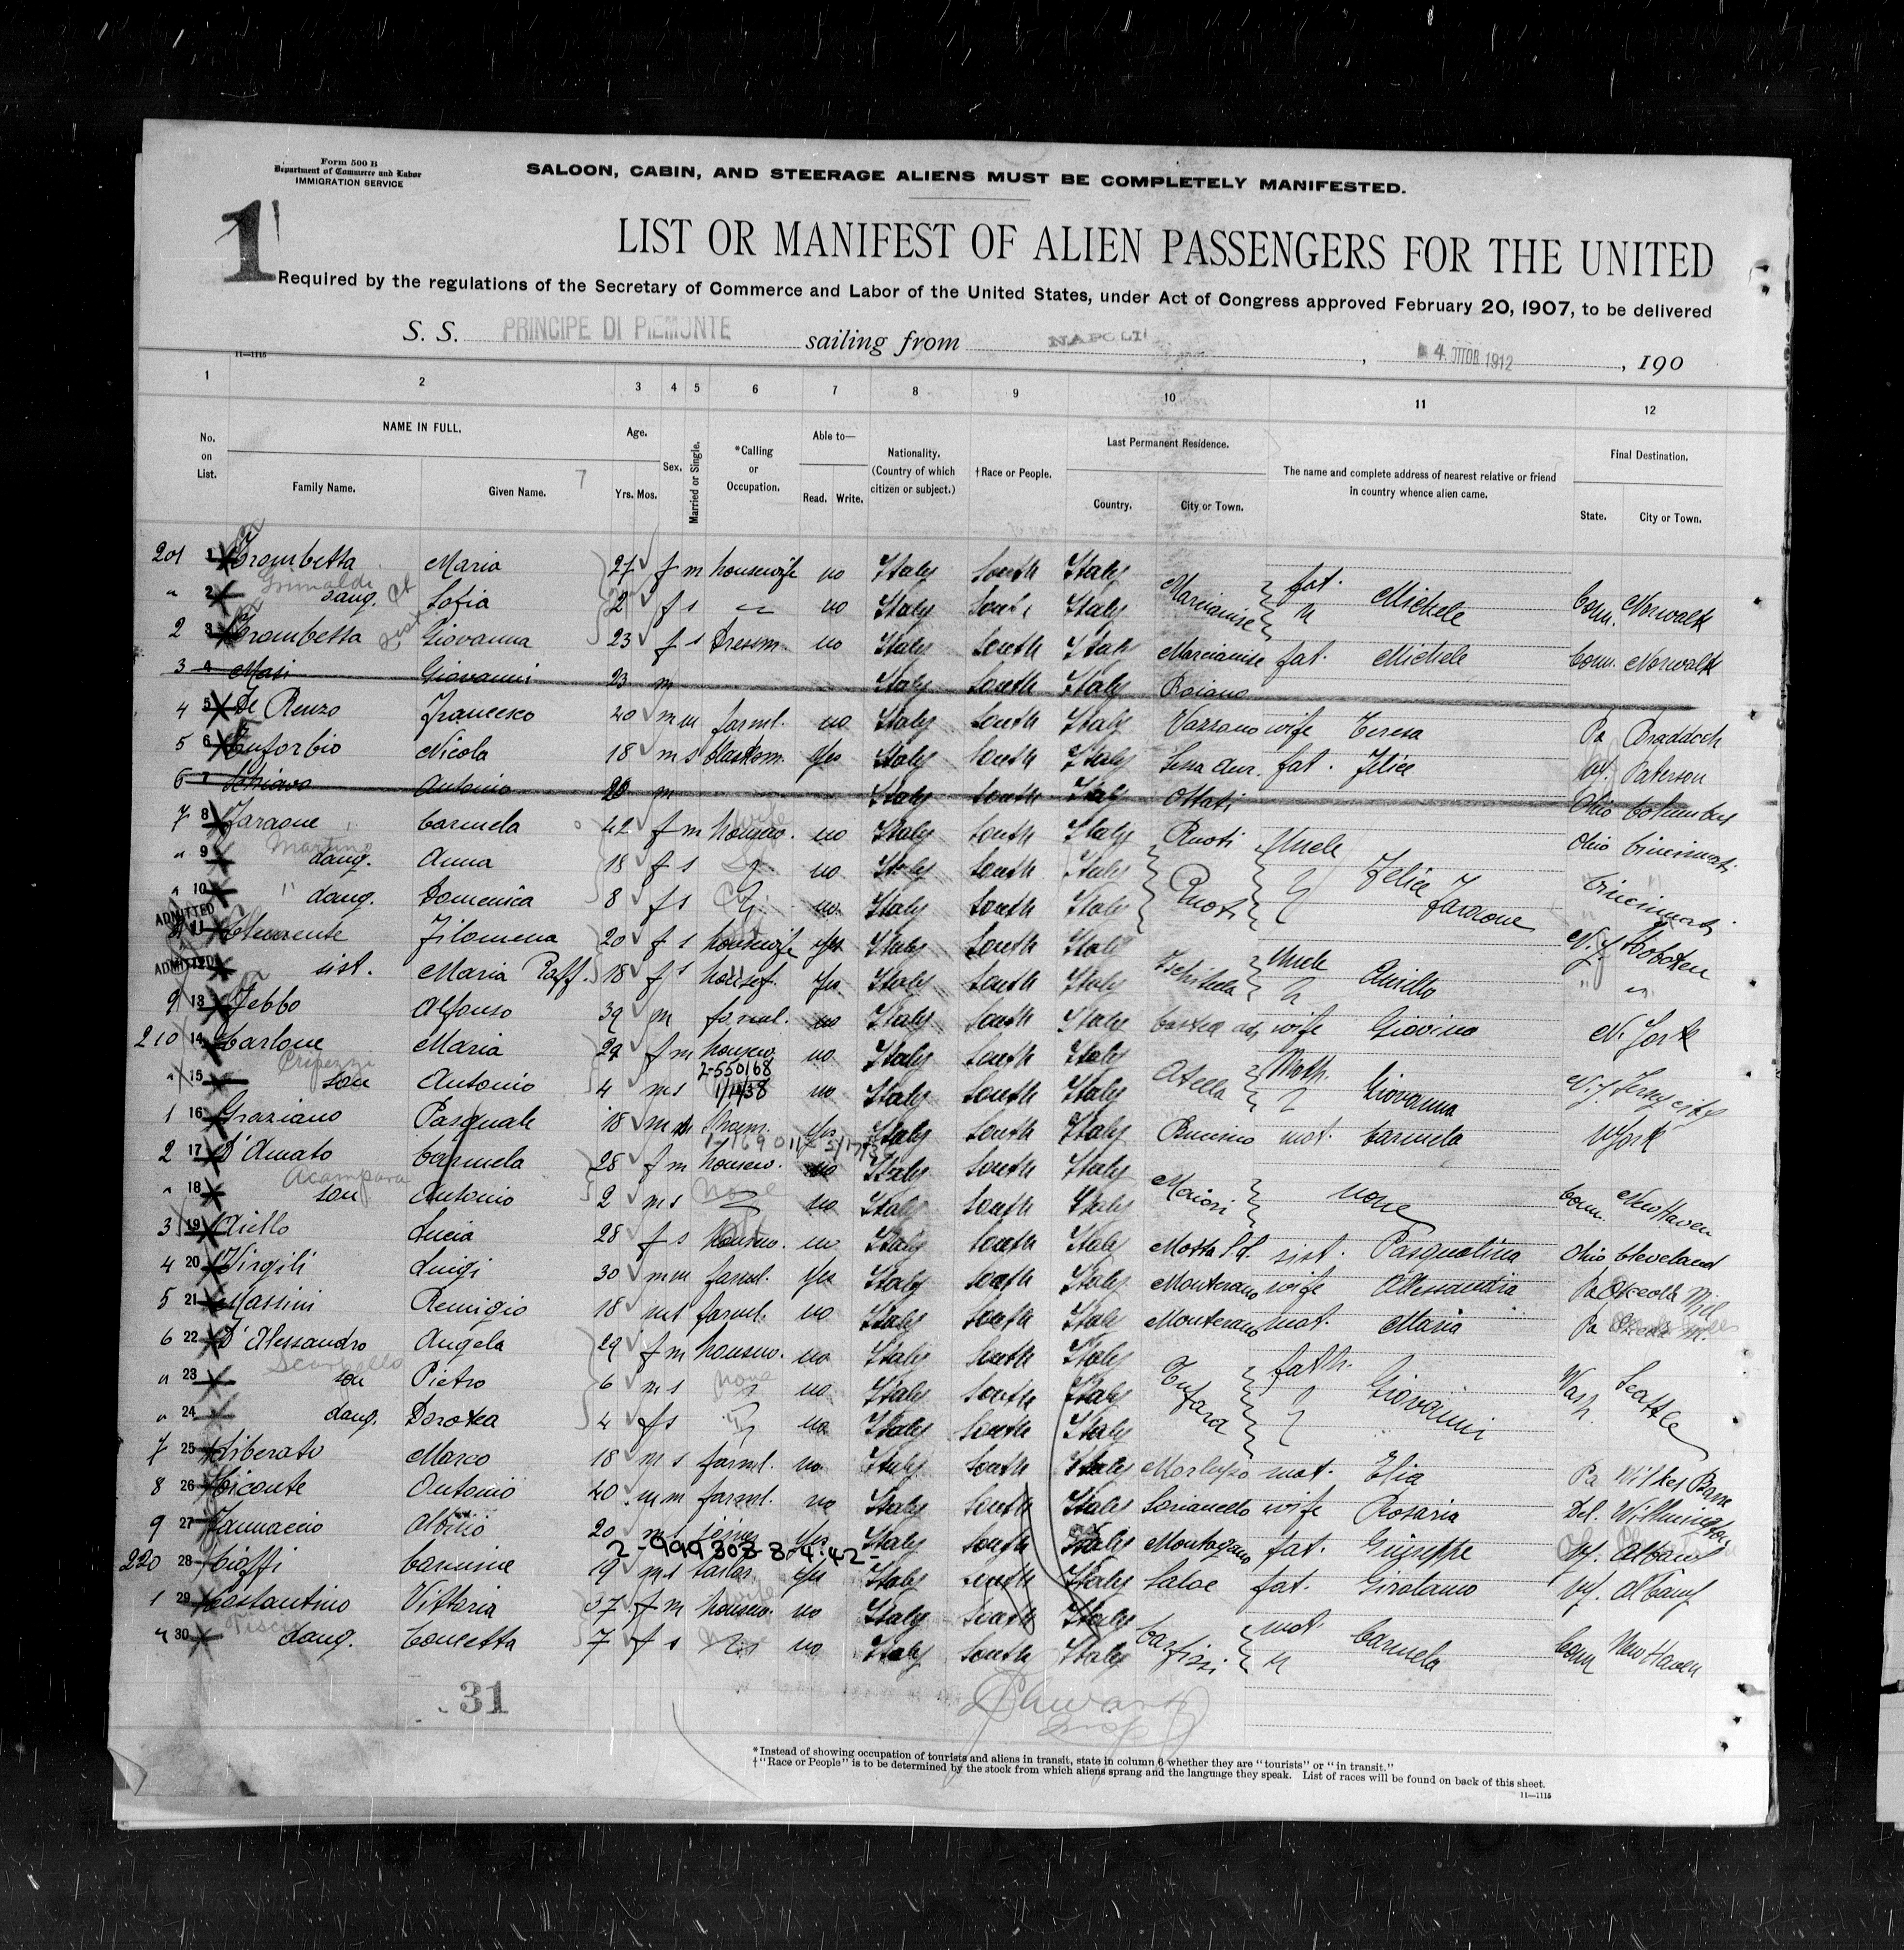 Form 500 B
Department of Commerce and Labor
IMMIGRATION SERVICE
SALOON, CABIN, AND STEERAGE ALIENS MUST BE COMPLETELY MANIFESTED.
1
LIST OR MANIFEST OF ALIEN PASSENGERS FOR THE UNITED
Required by the regulations of the Secretary of Commerce and Labor of the United States, under Act of Congress approved February 20, 1907, to be delivered
S. S. PRINCIPE DI PIEMONTE sailing from NAPOLI , 4 OTTOB 1912 , 190
11—1115
1 2 3 4 5 6 7 8 9 10 11 12
No. on List. NAME IN FULL. Age. Sex. Married or Single. *Calling or Occupation. Able to— Nationality. (Country of which citizen or subject.) †Race or People. Last Permanent Residence. The name and complete address of nearest relative or friend in country whence alien came. Final Destination.
Family Name. Given Name. 7 Yrs. Mos. Read. Write. Country. City or Town. State. City or Town.
201 1 Trombetta Maria 27 f m housewife no Italy South Italy Marcianise fat. Michele Conn. Norwalk
Grimaldi
" 2 daug. Sofia 2 f s no Italy South Italy
2 3 Trombetta Giovanna 23 f s Dressm. no Italy South Italy Marcianise fat. Michele Conn. Norwalk
3 4 Masi Giovanni 23 m Italy South Italy Roiano
4 5 De Renzo Francesco 40 m m farml. no Italy South Italy Vazzano wife Teresa Pa Braddock
5 6 Euforbio Nicola 18 m s yes Italy South Italy Sessa Aur. fat. Felice Paterson
6 7 Schiavo Antonio 28 m Italy South Italy Ottati Ohio Columbus
7 8 Faraone Carmela 42 f m housew. no Italy South Italy Ruoti Uncle Ohio Cincinnati
Martino
" 9 daug. Anna 18 f s no Italy South Italy Ruoti Felice Faraone Cincinnati
" 10 " daug. Domenica 8 f s no Italy South Italy
ADMITTED 11 Filomena 20 f s housewife yes Italy South Italy Ischitella Uncle N.J. Hoboken
ADMITTED 12 sist. Maria Raff. 18 f s yes Italy South Italy " "
9 13 Febbo Alfonso 39 m farml. no Italy South Italy wife Giovina N. York
210 14 Carlone Maria 29 f m housew. no Italy South Italy Atella Moth. Giovanna N.J. Jersey City
2-550168
" 15 son Antonio 4 m s 1/14/38 no Italy South Italy
1 16 Graziano Pasquale 18 m yes Italy South Italy mot. Carmela N York
2 17 D'Amato Carmela 28 f m housew. no Italy South Italy Maiori none Conn. New Haven
Acampora
" 18 son Antonio 2 m s none no Italy South Italy
3 19 Aiello Lucia 28 f s housew. no Italy South Italy sist. Pasqualina Ohio Cleveland
4 20 Virgili Luigi 30 m m farml. yes Italy South Italy Monterano wife Alessandra Pa Osceola Mill
5 21 Massini Remigio 18 m s farml. no Italy South Italy Monterano mot. Maria Pa
6 22 D'Alessandro Angela 29 f m housew. no Italy South Italy Tufara fath. Giovanni Wash. Seattle
" 23 son Pietro 6 m s none no Italy South Italy
" 24 daug. Dorotea 4 f s no Italy South Italy
7 25 Liberato Marco 18 m s farml. no Italy South Italy Morlupo mot. Elia Pa Wilkes Barre
8 26 Viconte Antonio 40 m m farml. no Italy South Italy Sorianello wife Rosaria Del. Wilmington
9 27 Iannaccio Albino 20 m s yes Italy South Italy Montagano fat. Giuseppe Albany
2-999308 8-4-42
220 28 Ciaffi Carmine 19 m s tailor yes Italy South Italy fat. Girolamo Albany
1 29 Costantino Vittoria 37 f m housew. no Italy South Italy Carfizzi mot. Carmela Conn New Haven
" 30 daug. Concetta 7 f s no Italy South Italy
31
*Instead of showing occupation of tourists and aliens in transit, state in column 6 whether they are "tourists" or "in transit."
†"Race or People" is to be determined by the stock from which aliens sprang and the language they speak. List of races will be found on back of this sheet.
11—1115